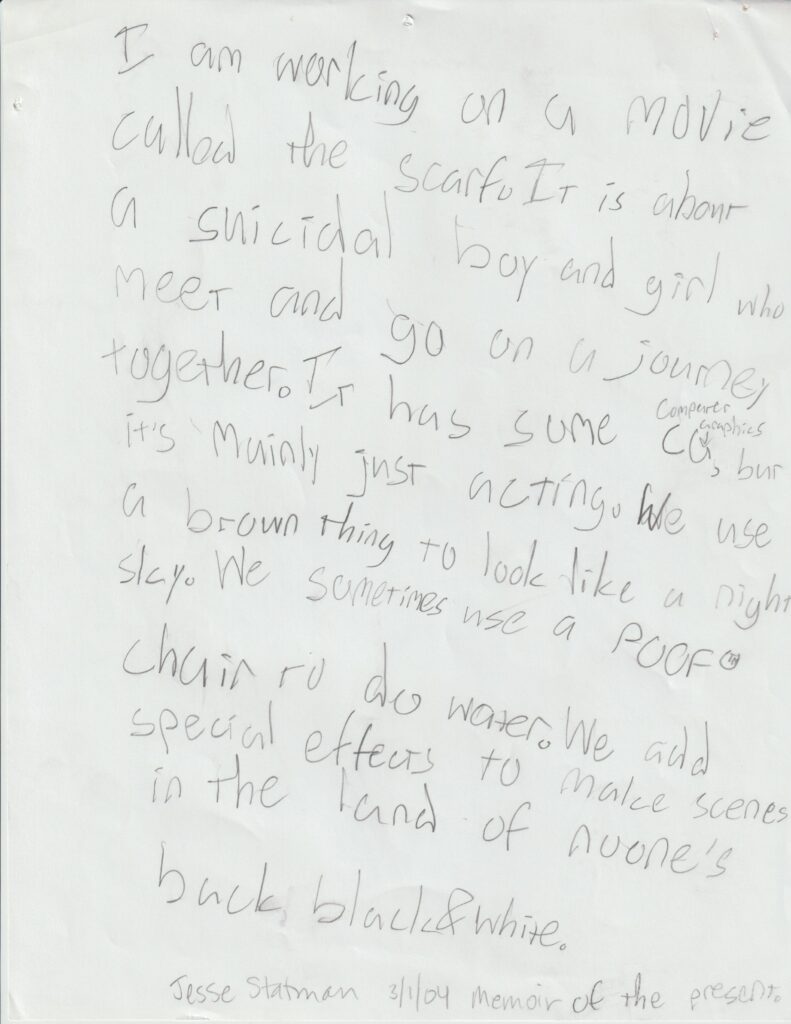 I am working on a movie
called the scarf. It is about
a suicidal boy and girl who
meet and go on a journey
together. It has some CG,
Computer
graphics
but
it's Mainly just acting. We use
a brown thing to look like a night
sky. We sometimes use a POOF
chair to do water. We add
special effects to make scenes
in the land of noone's
back black&white.
Jesse Statman 3/1/04 Memoir of the present.